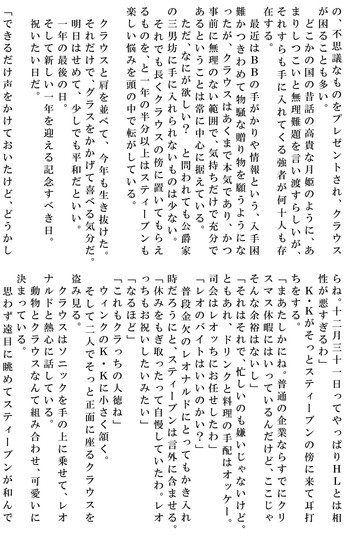 の、不思議なものをプレゼントされ、クラウス
が困ることも多い。
　どこかの国の昔話の高貴な月姫のように、あ
まりしつこいと無理難題を言い渡すらしいが、
それすらも手に入れてくる強者が何十人も存
在する。
　最近はＢＢの手がかりや情報という、入手困
難かつきわめて物騒な贈り物を願うようになっ
たが、クラウスはあくまで本気であり、かつ
事前に無理のない範囲で、気持ちだけで充分で
あるということは常に中心に据えている。
　ただ、なにが欲しい？　と問われても公爵家
の三男坊に手に入れられないものは少ない。
　それでも長くクラウスの傍に置いてもらえ
るものを、と一年の半分以上はスティーブンも
楽しい悩みを頭の中で転がしている。
　クラウスと肩を並べて、今年も生き抜けた。
それだけで、グラスをかかげて喜べる気分だ。
　明日はせめて、少しでも平和だといい。
　一年の最後の日。
　そして新しい一年を迎える記念すべき日。
　祝いたい日だ。
「できるだけ声をかけておいたけど、どうかし
らね。十二月三十一日ってやっぱりＨＬとは相
性が悪すぎるわ」
　Ｋ・Ｋがそっとスティーブンの傍に来て耳打
ちをする。
「まあたしかにね。普通の企業ならすでにクリ
スマス休暇にはいっているんだけど、ここじゃ
そんな余裕はないし」
「それはそれで、忙しいのも嫌いじゃないけど。
ともあれ、ドリンクと料理の手配はオッケー。
司会はレオッちにお任せしたわ」
「レオのバイトはいいのかい？」
　普段金欠のレオナルドにとってもかき入れ
時だろうにと、スティーブンは言外に含ませる。
「休みをもぎ取ったって自慢していたわ。レオ
っちもお祝いしたいみたい」
「なるほど」
「これもクラっちの人徳ね」
　ウィンクのＫ・Ｋに小さく頷く。
　そして二人でそっと正面に座るクラウスを
盗み見る。
　クラウスはソニックを手の上に乗せて、レオ
ナルドと熱心に話している。
　動物とクラウスなんて組み合わせ、可愛いに
決まっている。
　思わず遠目に眺めてスティーブンが和んで